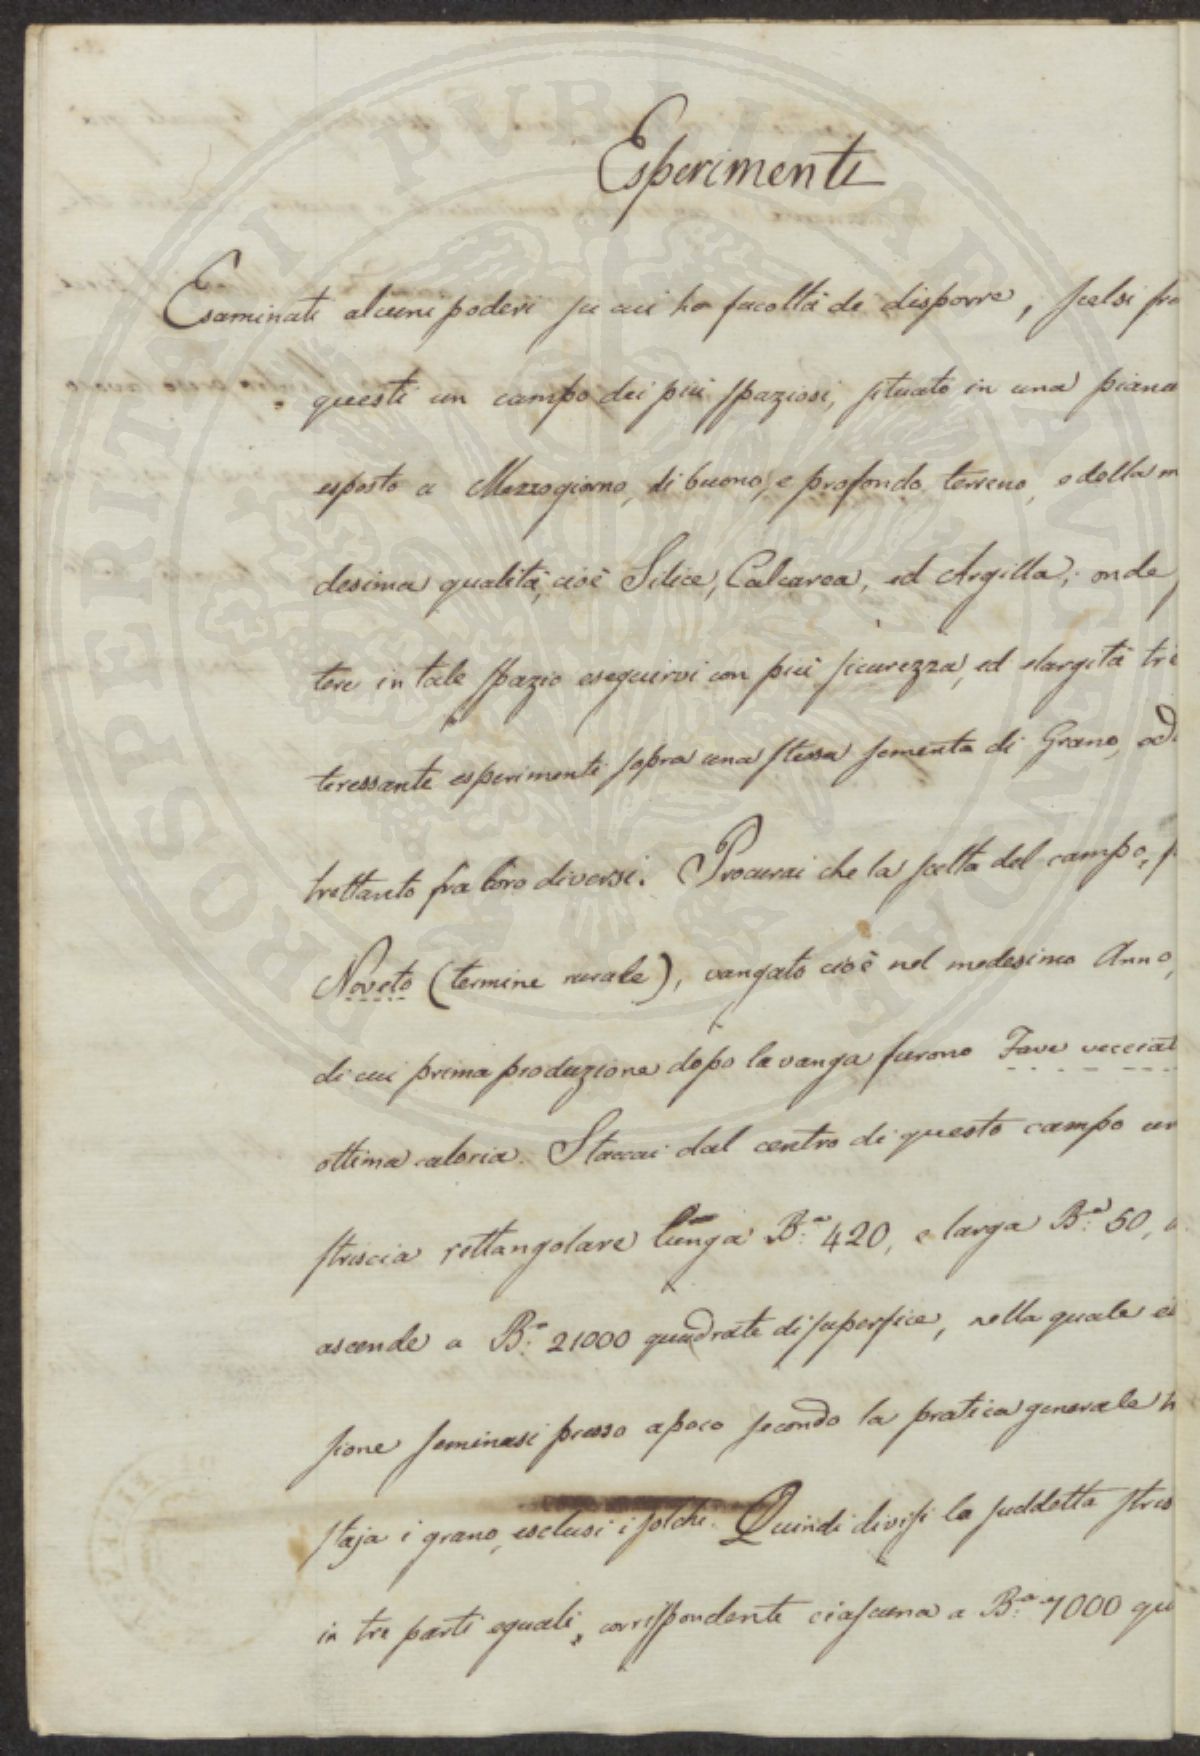 Esperimenti
Esaminati alcuni poderi su cui ho facoltà di disporre, scelsi fra
questi un campo dei più spaziosi, situato in una piana
esposto a Mezzogiorno, di buono, e profondo terreno, e della m
desima qualità, cioè Silice, Calcarea, ed Argilla, onde
tere in tale spazio eseguirvi con più sicurezza, ed elargità tre
teressante esperimenti sopra una stessa sementa di Grano, ad
trettanto fra loro diversi. Procurai che la scelta del campo, f
Noveto (termine rurale), vangato cioè nel medesimo Anno,
di cui prima produzione dopo la vanga furono Fave vecciat
ottima caloria. Staccai dal centro di questo campo un
striscia rettangolare lunga B.a 420, e larga B.a 50, a
ascende a B.a 21000 quadrate di superfice, nella quale es
sione seminasi presso a poco secondo la pratica generale
staja i grano, esclusi i solchi. Quindi divisi la suddetta stris
in tre parti eguali, corrispondente ciascuna a B.a 7000 qu
PROSPERITATI PUBLICAE AUGENDAE